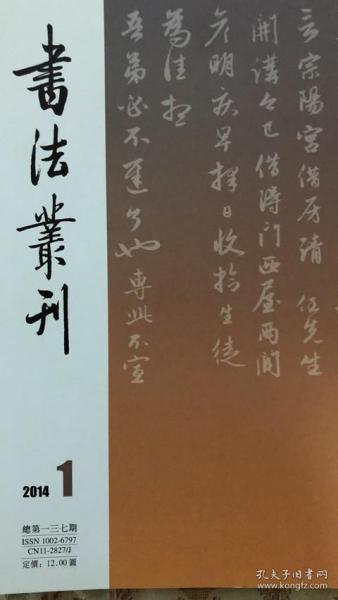 書法叢刊
2014 1
總第一三七期
ISSN 1002-6797
CN11-2827/J
定價：12.00圓
言宗陽宮借房請任先生
開講今已借得門西屋兩間
彦明疾早擇日收拾生徒
為佳想
吾弟必不遲了也專此不宣
孔夫子旧书网
www.kongfz.com